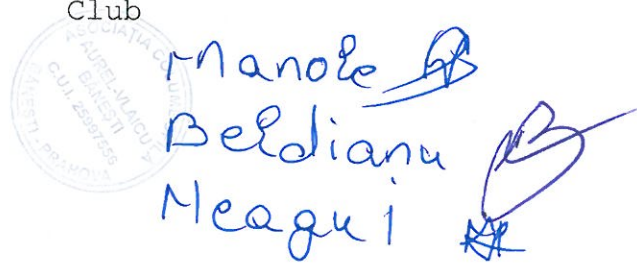 Club
ASOCIAȚIA COLUMB
AUREL VLAICU
BĂNEȘTI
C.U.I. 25997556
BĂNEȘTI - PRAHOVA
Manole
Beldianu
Neagu i